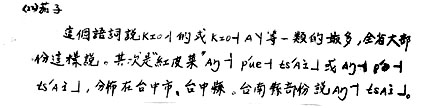 茄子
這個語詞說kio˧的或kio˧ A˥等一類的最多，全省大部
份這樣說。其次是"紅皮菜"Aŋ˧ p'ue˧ ts'Ai˩或Aŋ˧ p'ə˧
ts'Ai˩，分佈在台中市、台中縣。台南縣部份說Aŋ˧ tsAi˩。